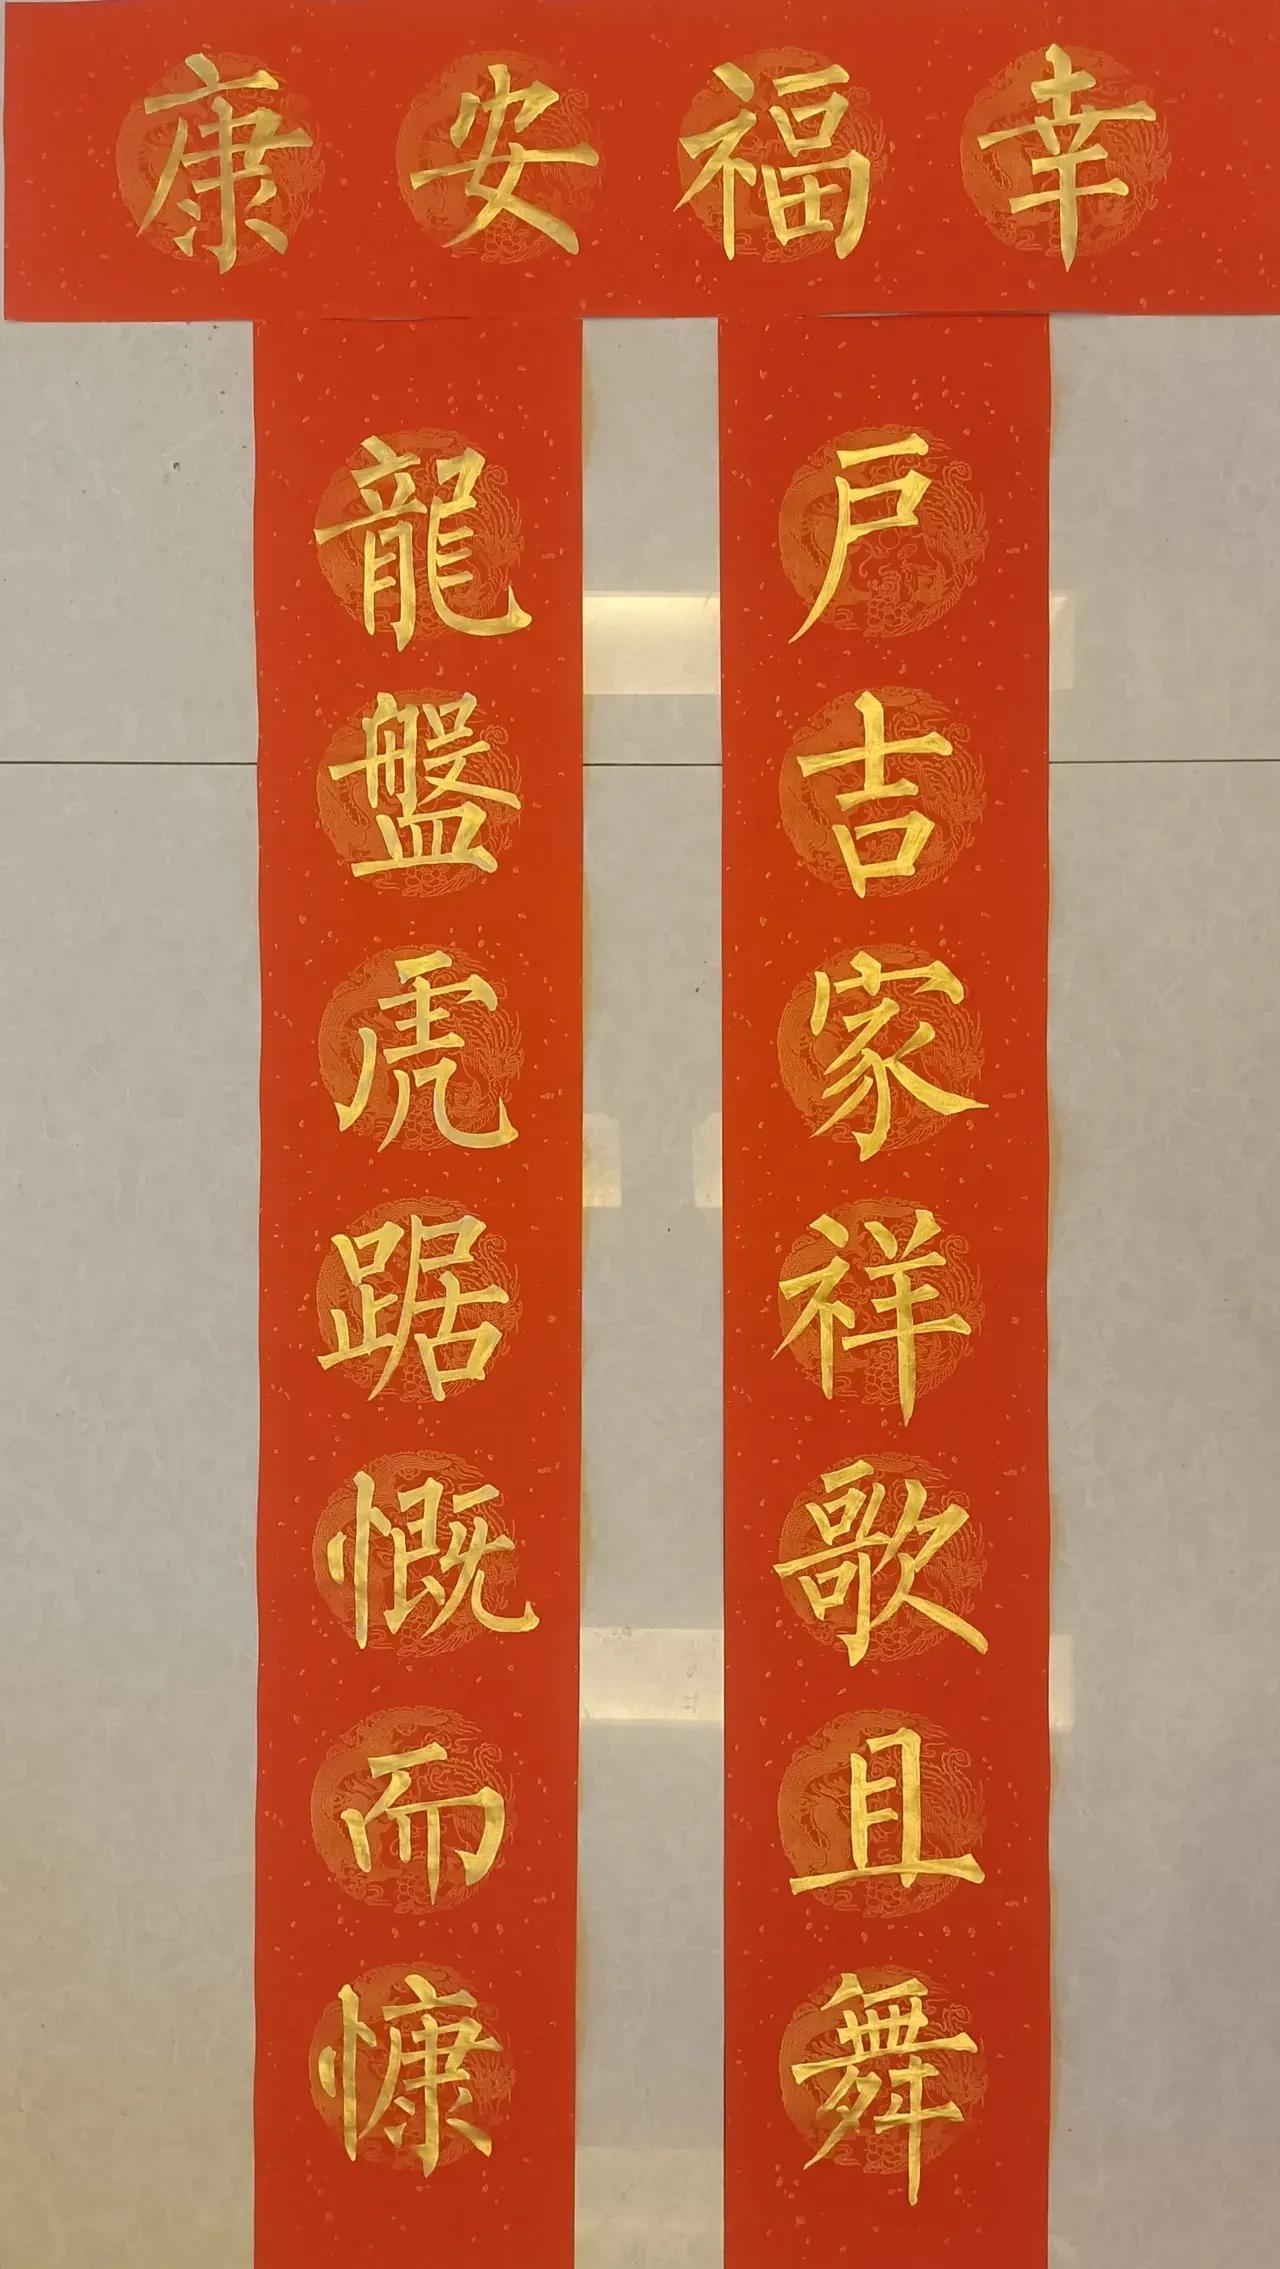 幸福安康
戶吉家祥歌且舞
龍盤虎踞慨而慷